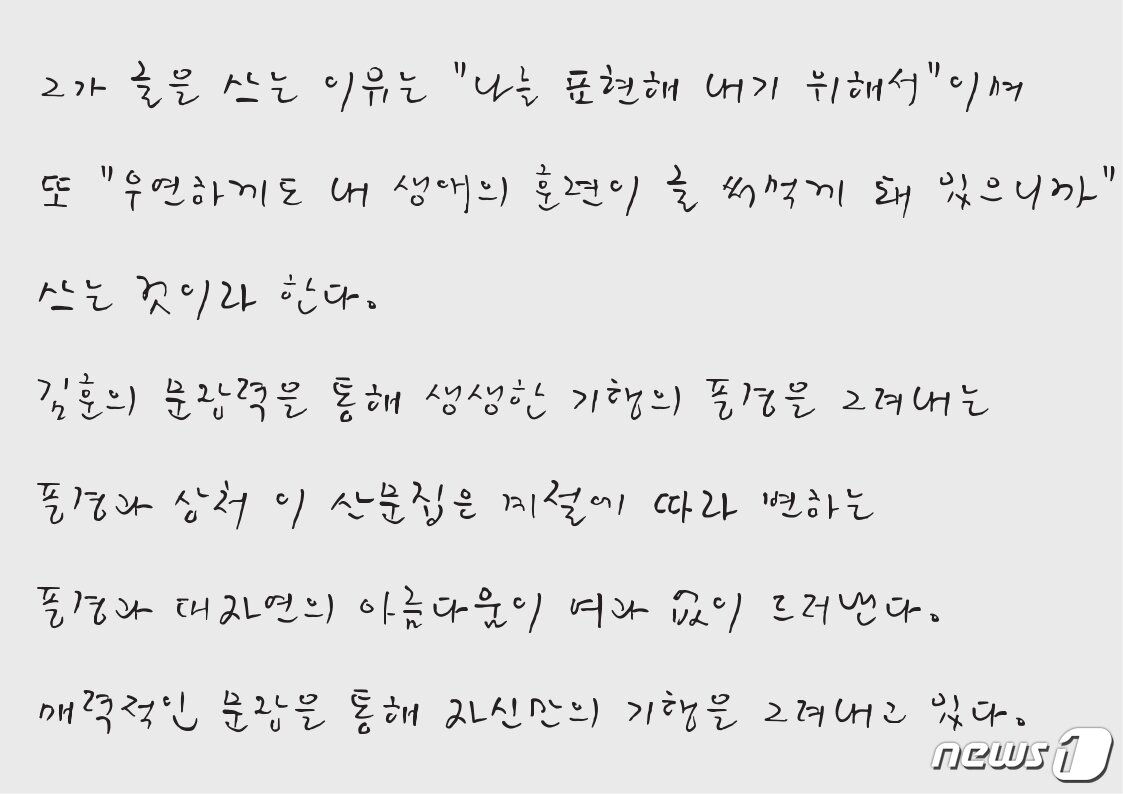 그가 글을 쓰는 이유는 "나를 표현해 내기 위해서"이며
또 "우연하게도 내 생애의 훈련이 글 써먹게 돼 있으니까"
쓰는 것이라 한다.
김훈의 문장력을 통해 생생한 기행의 풍경을 그려내는
풍경과 상처 이 산문집은 계절에 따라 변하는
풍경과 대자연의 아름다움이 여과 없이 드러낸다.
매력적인 문장을 통해 자신만의 기행을 그려내고 있다.
news1